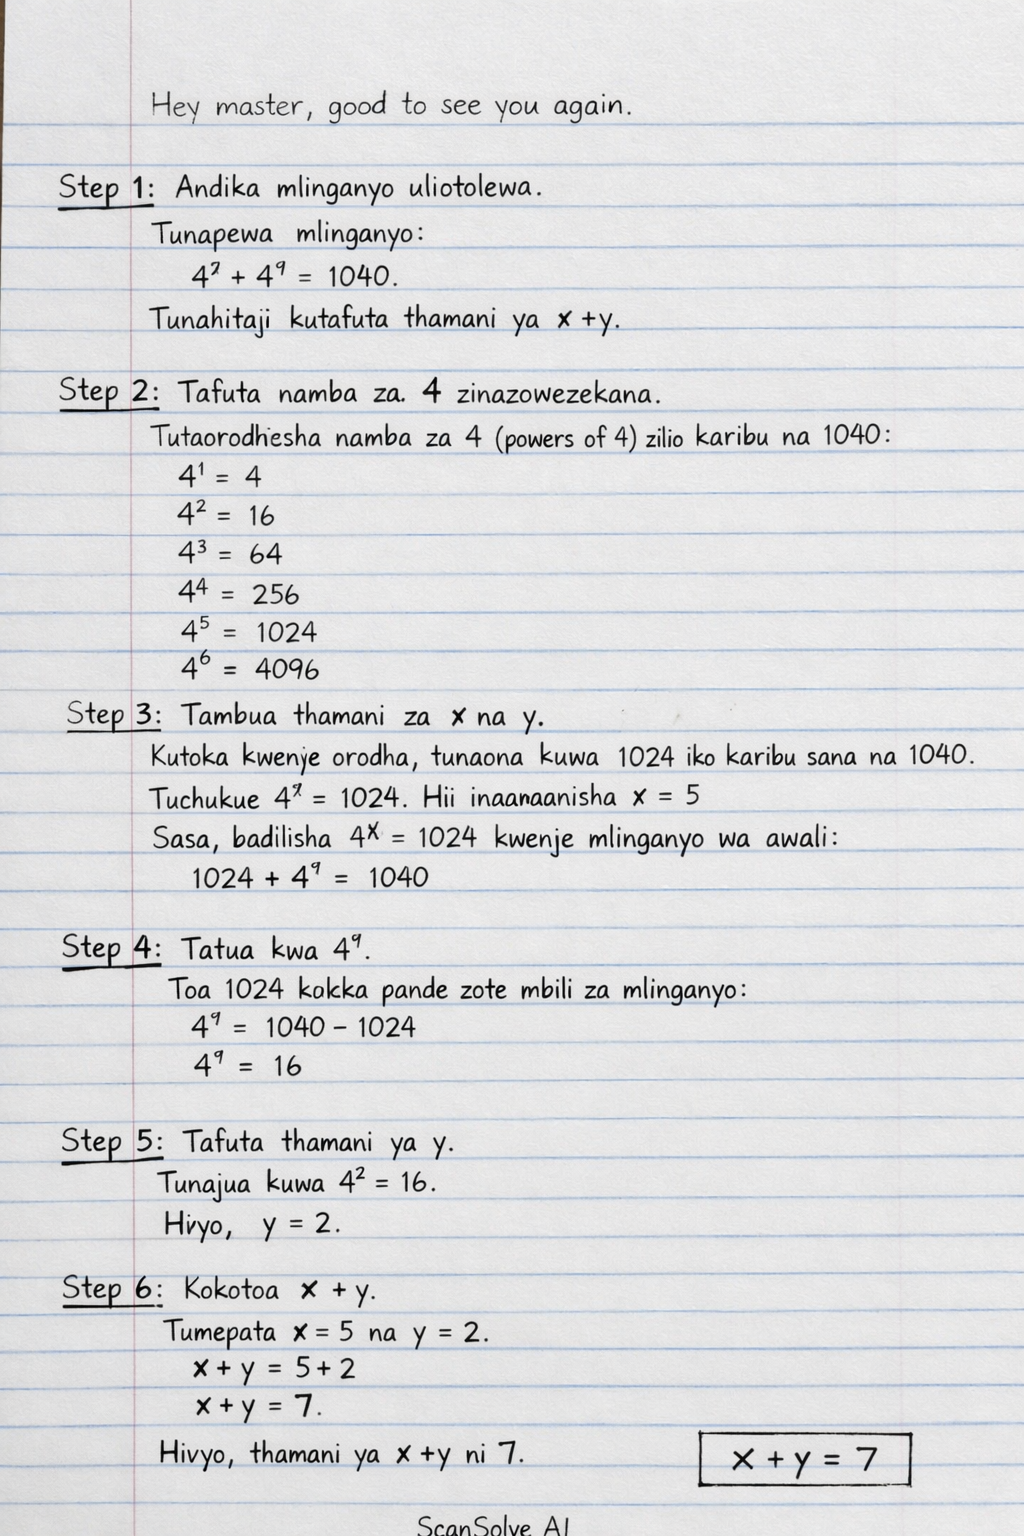 Hey master, good to see you again.
Step 1: Andika mlinganyo uliotolewa.
Tunapewa mlinganyo:
4² + 4⁹ = 1040.
Tunahitaji kutafuta thamani ya x + y.
Step 2: Tafuta namba za. 4 zinazowezekana.
Tutaorodhesha namba za 4 (powers of 4) zilio karibu na 1040:
4¹ = 4
4² = 16
4³ = 64
4⁴ = 256
4⁵ = 1024
4⁶ = 4096
Step 3: Tambua thamani za x na y.
Kutoka kwenje orodha, tunaona kuwa 1024 iko karibu sana na 1040.
Tuchukue 4ˣ = 1024. Hii inaanaanisha x = 5
Sasa, badilisha 4ˣ = 1024 kwenje mlinganyo wa awali:
1024 + 4⁹ = 1040
Step 4: Tatua kwa 4⁹.
Toa 1024 kokka pande zote mbili za mlinganyo:
4⁹ = 1040 – 1024
4⁹ = 16
Step 5: Tafuta thamani ya y.
Tunajua kuwa 4² = 16.
Hivyo, y = 2.
Step 6: Kokotoa x + y.
Tumepata x = 5 na y = 2.
x + y = 5 + 2
x + y = 7.
Hivyo, thamani ya x + y ni 7.
x + y = 7
ScanSolve AI